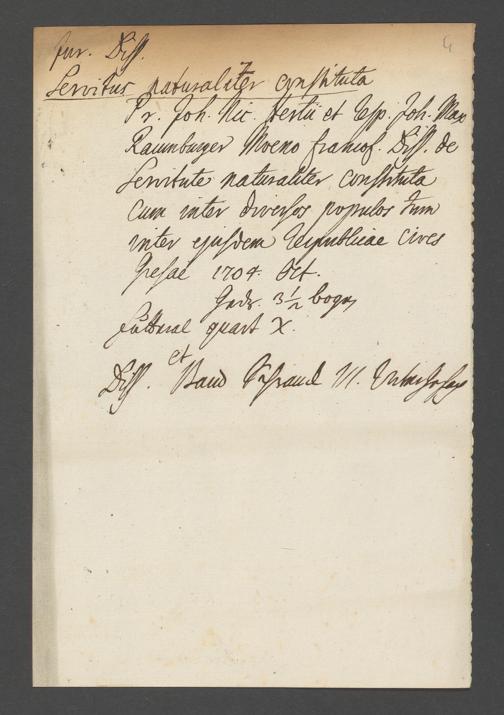 Jur. Diss.
Servitus naturaliter constituta
Pr. Joh. Nic. Hertii et Resp. Joh. Max
Raumburger Moeno francof. Diss. de
Servitute naturaliter constituta
cum inter diversos populos tum
inter ejusdem reipublicae cives
Gresae 1704. Oct.
3 1/2 bogn
quart X.
et
Diss. Band